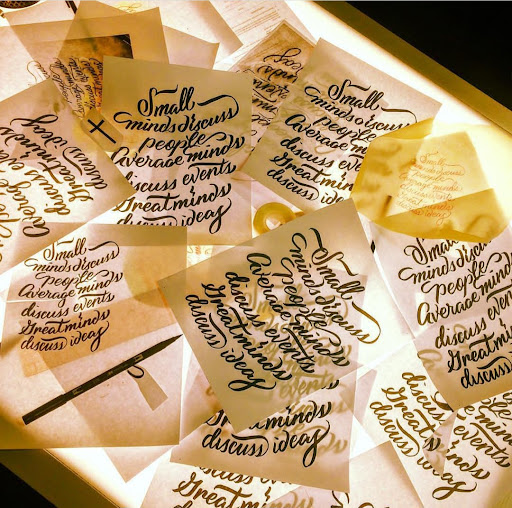 Small
minds discuss
people
Average minds
discuss events
Great minds
discuss ideas
Small
minds discuss
people
Average minds
discuss events
Great minds
discuss ideas
Average
discuss
Great minds
discuss ideas
Small
minds discuss
people
Average minds
discuss events
Great minds
discuss ideas
Small
minds discuss
people
Average minds
discuss events
Great minds
discuss ideas
Small
minds discuss
people
Average minds
discuss events
Great minds
discuss
minds
discuss ideas
discuss events
Great minds
discuss